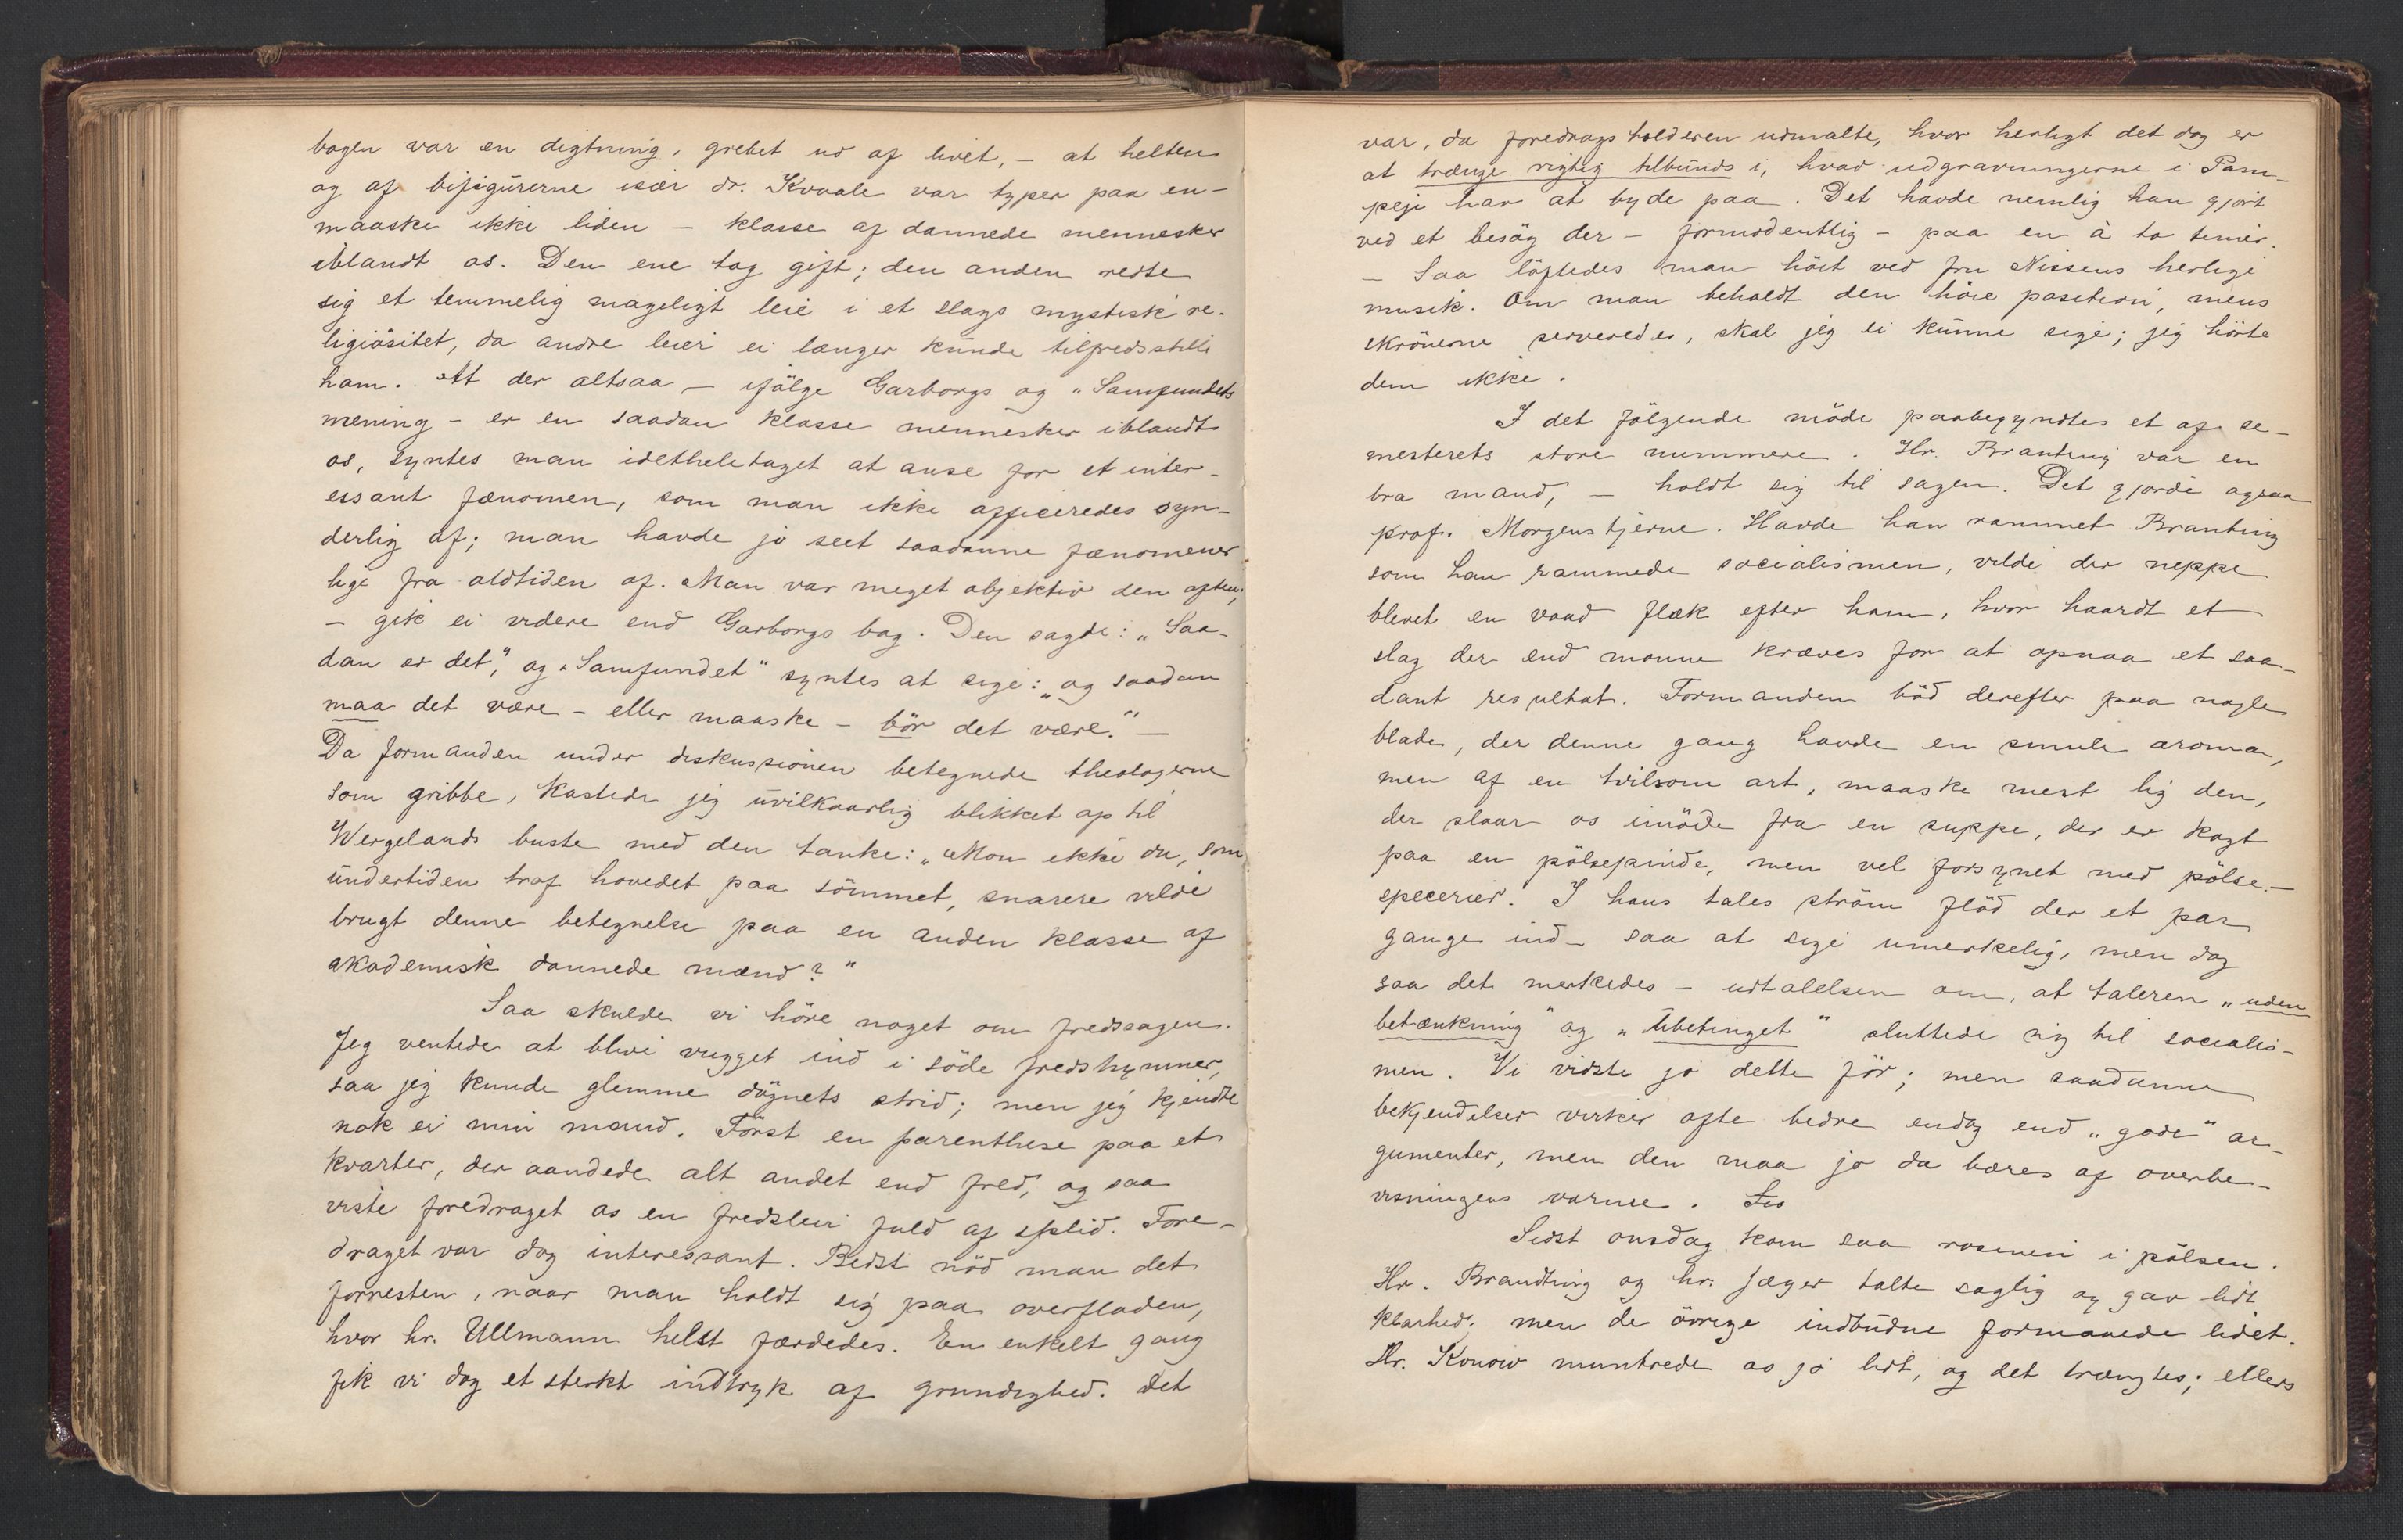 bogen var en digtning, grebet ud af livet, – at helten
og af bifigurerne især dr. Kvaale var typer paa en –
maaske ikke liden – klasse af dannede mennesker
iblandt os. Den ene tog gift; den anden redte
sig et temmelig mageligt leie i et slags mystisk re-
ligiösitet, da andre leier ei længer kunde tilfredsstille
ham. At der altsaa – ifölge Garborgs og „Samfundets
mening – er en saadan klasse mennesker iblandt
os, syntes man idetheletaget at anse for et inter-
essant fænomen, som man ikke afficeredes syn-
derlig af; man havde jo seet saadanne fænomener
lige fra oldtiden af. Man var meget objektiv den aften;
– gik ei videre end Garborgs bog. Den sagde: „Saa-
dan er det", og „Samfundet" syntes at sige: „og saadan
maa det være – eller maaske – bör det være." –
Da formanden under diskussionen betegnede theologerne
som gribbe, kastede jeg uvilkaarlig blikket op til
Wergelands buste med den tanke: „Mon ikke du, som
undertiden traf hovedet paa sömmet, snarere vilde
brugt denne betegnelse paa en anden klasse af
akademisk dannede mænd?"
Saa skulde vi höre noget om fredssagen.
Jeg ventede at blive vugget ind i söde fredshymner,
saa jeg kunde glemme dögnets strid; men jeg kjendte
nok ei min mand. Först en parenthese paa et
kvarter, der aandede alt andet end fred, og saa
viste foredraget os en fredsleir fuld af splid. Fore-
draget var dog interessant. Bedst nöd man det
forresten, naar man holdt sig paa overfladen,
hvor hr. Ullmann helst færdedes. En enkelt gang
fik vi dog et sterkt indtryk af grundighed. Det
var, da foredragsholderen udmalte, hvor herligt det dog er
at trænge rigtig tilbunds i, hvad udgravningerne i Pom-
peji har at byde paa. Det havde nemlig han gjort
ved et besög der – formodentlig – paa en à to timer.
– Saa löftedes man höit ved fru Nissens herlige
musik. Om man beholdt den höie position, mens
skrönerne serveredes, skal jeg ei kunne sige; jeg hörte
dem ikke.
I det fölgende möde paabegyndtes et af se-
mesterets store nummere. Hr. Branting var en
bra mand, – holdt sig til sagen. Det gjorde ogsaa
prof. Morgenstjerne. Havde han rammet Branting
som han rammede socialismen, vilde der neppe
blevet en vaad flæk efter ham, hvor haardt et
slag der end monne kræves for at opnaa et saa-
dant resultat. Formanden böd derefter paa nogle
blade, der denne gang havde en smule aroma,
men af en tvilsom art, maaske mest lig den,
der slaar os imöde fra en suppe, der er kogt
paa en pölsepinde, men vel forsynet med pölse-
specerier. I hans tales ström flöd der et par
gange ind – saa at sige umerkelig, men dog
saa det merkedes – udtalelsen om, at taleren „uden
betænkning" og „ubetinget" sluttede sig til socialis-
men. Vi vidste jo dette för; men saadanne
bekjendelser virker ofte bedre endog end „gode" ar-
gumenter, men den maa jo da bæres af overbe-
visningens varme.
Sidst onsdag kom saa rosinen i pölsen.
Hr. Brandting og hr. Jæger talte saglig og gav lidt
klarhed; men de övrige indbudne formaaede lidet.
Hr. Konow muntrede os jo lidt, og det trængtes; ellers